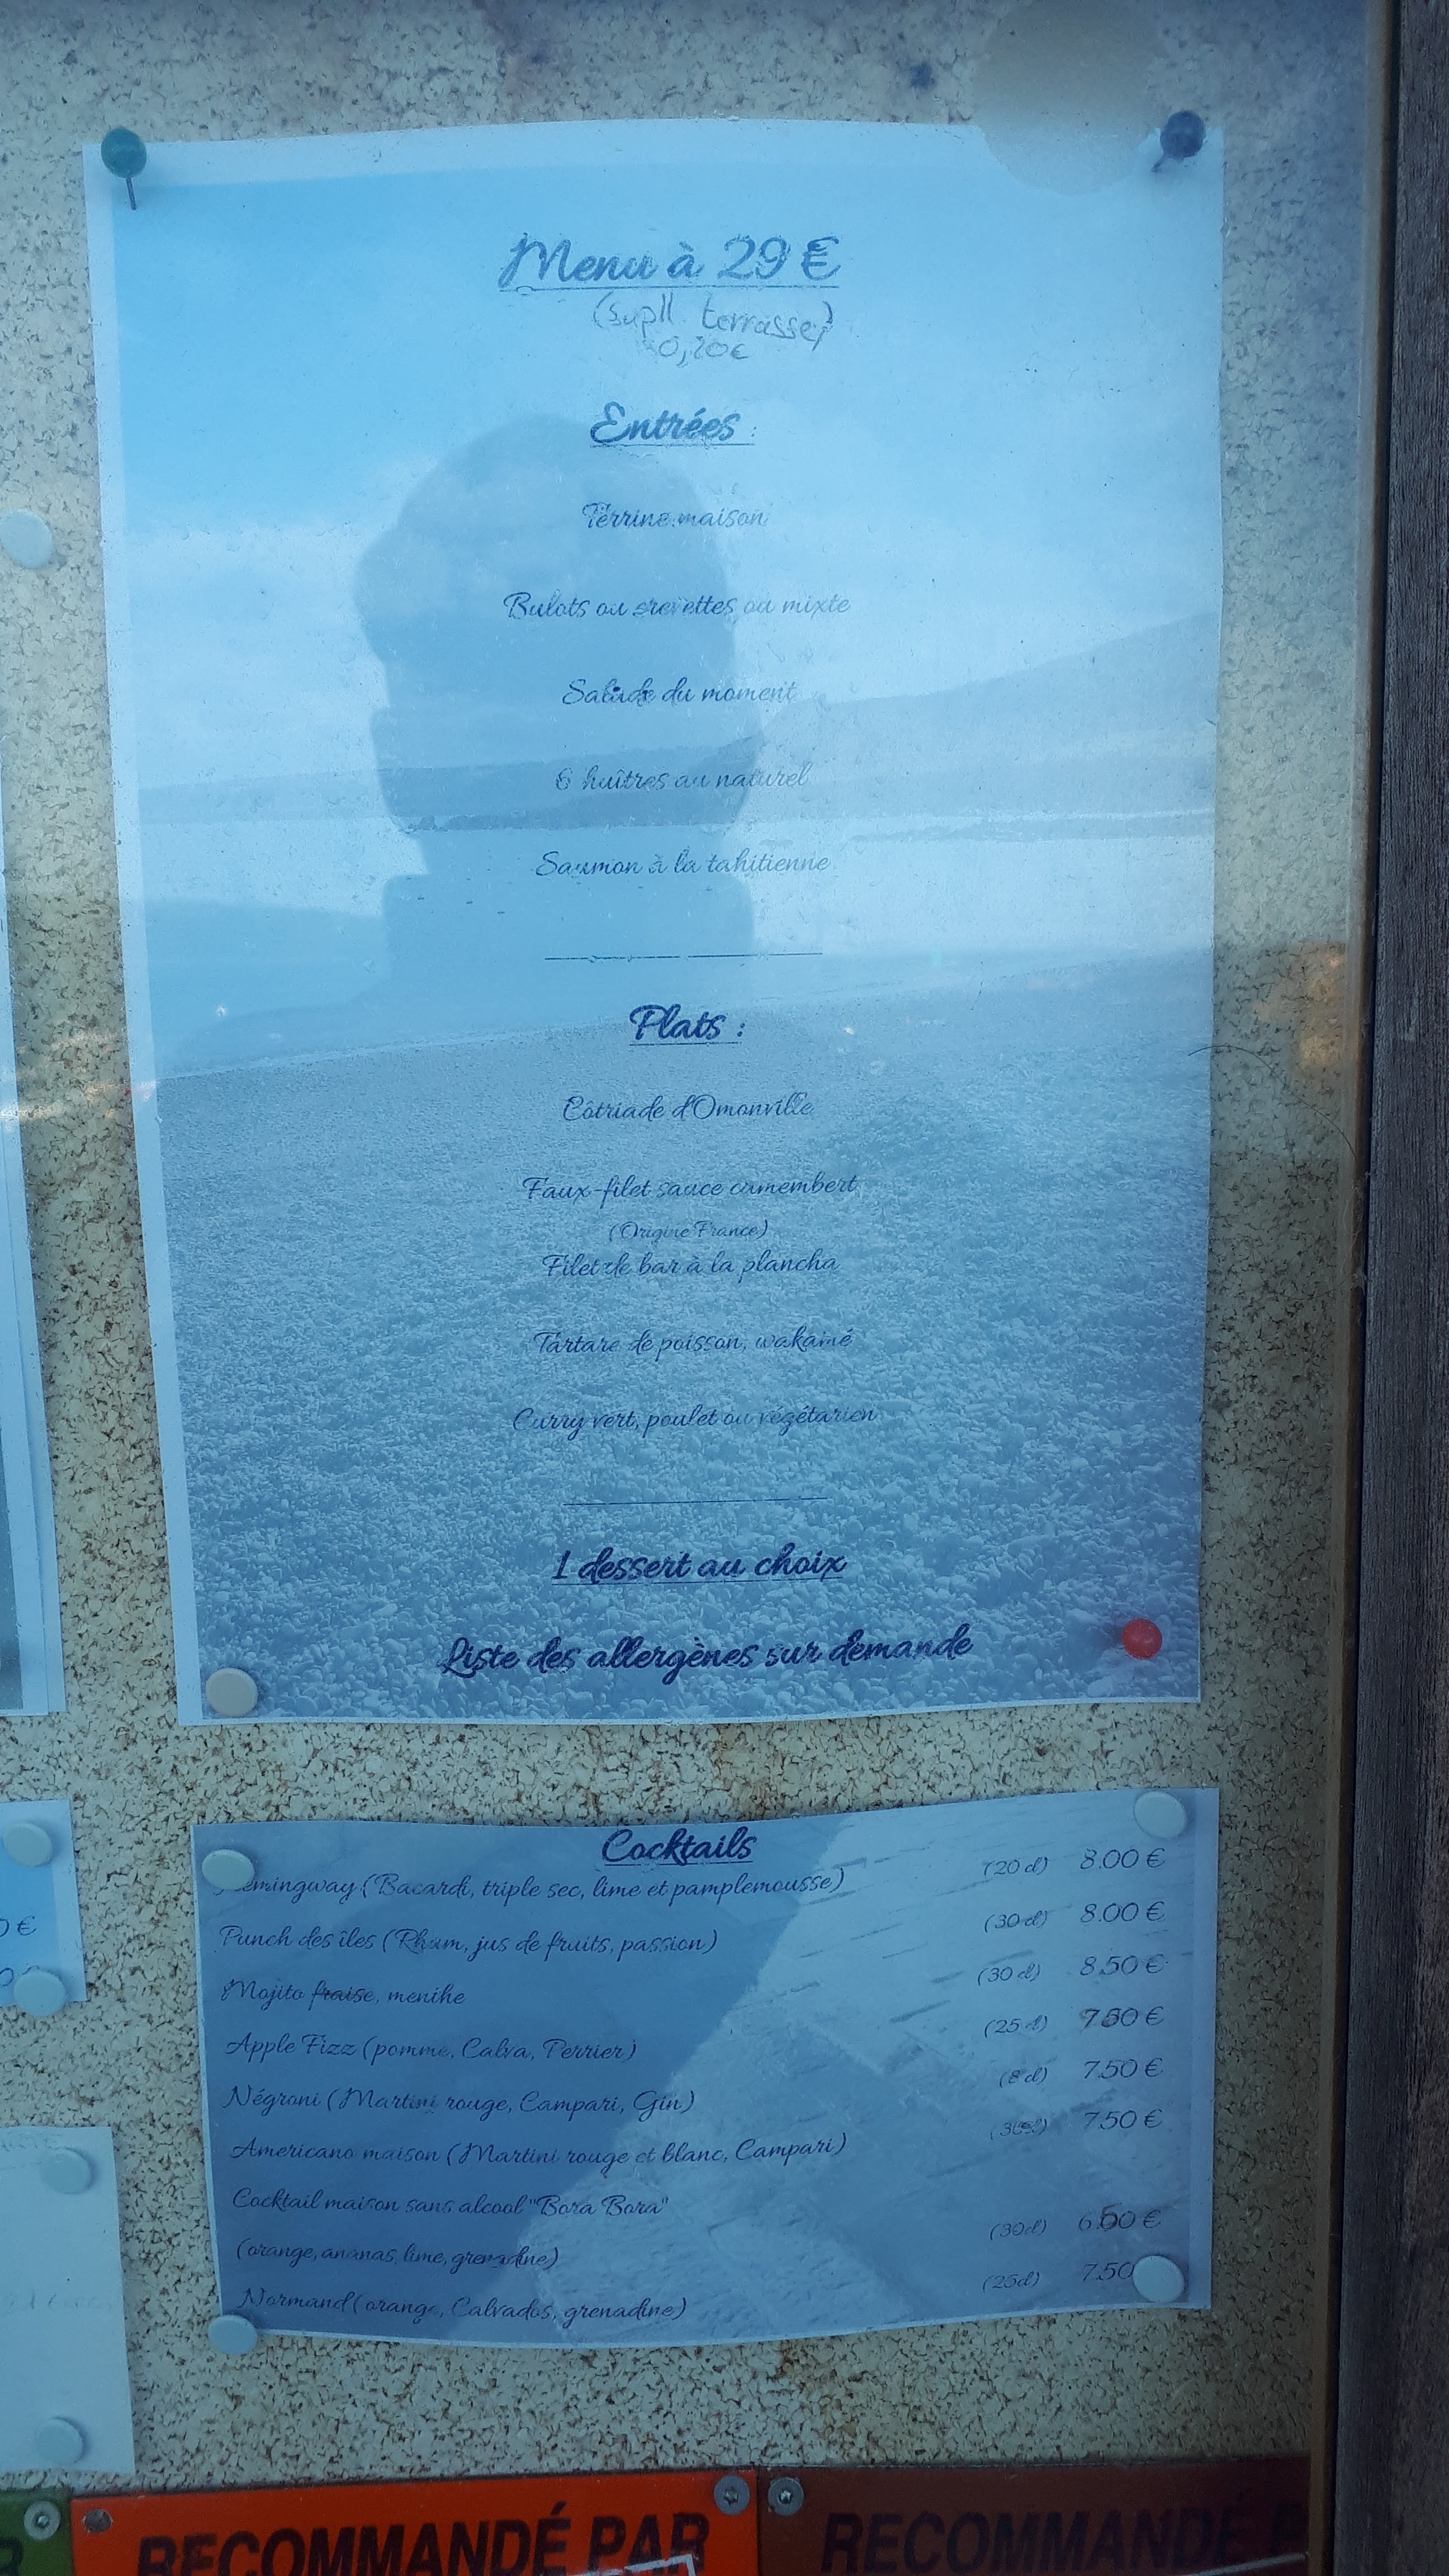 Menu à 29 €
(supll. terrasse)
0,20€
Entrées :
Terrine maison
Bulots ou crevettes ou mixte
Salade du moment
6 huîtres au naturel
Saumon à la tahitienne
Plats :
Côtriade d'Omonville
Faux-filet sauce camembert
(Origine France)
Filet de bar à la plancha
Tartare de poisson, wakamé
Curry vert, poulet ou végétarien
1 dessert au choix
Liste des allergènes sur demande
Cocktails
Hemingway (Bacardi, triple sec, lime et pamplemousse) (20 cl) 8.00 €
Punch des îles (Rhum, jus de fruits, passion) (30 cl) 8.00 €
Mojito fraise, menthe (30 cl) 8.50 €
Apple Fizz (pomme, Calva, Perrier) (25 cl) 7.50 €
Négroni (Martini rouge, Campari, Gin) (8 cl) 7.50 €
Americano maison (Martini rouge et blanc, Campari) 7.50 €
Cocktail maison sans alcool "Bora Bora"
(orange, ananas, lime, grenadine) (30cl) 6.50 €
Normand (orange, Calvados, grenadine) (25cl) 7.50
RECOMMANDÉ PAR
RECOMMANDÉ P